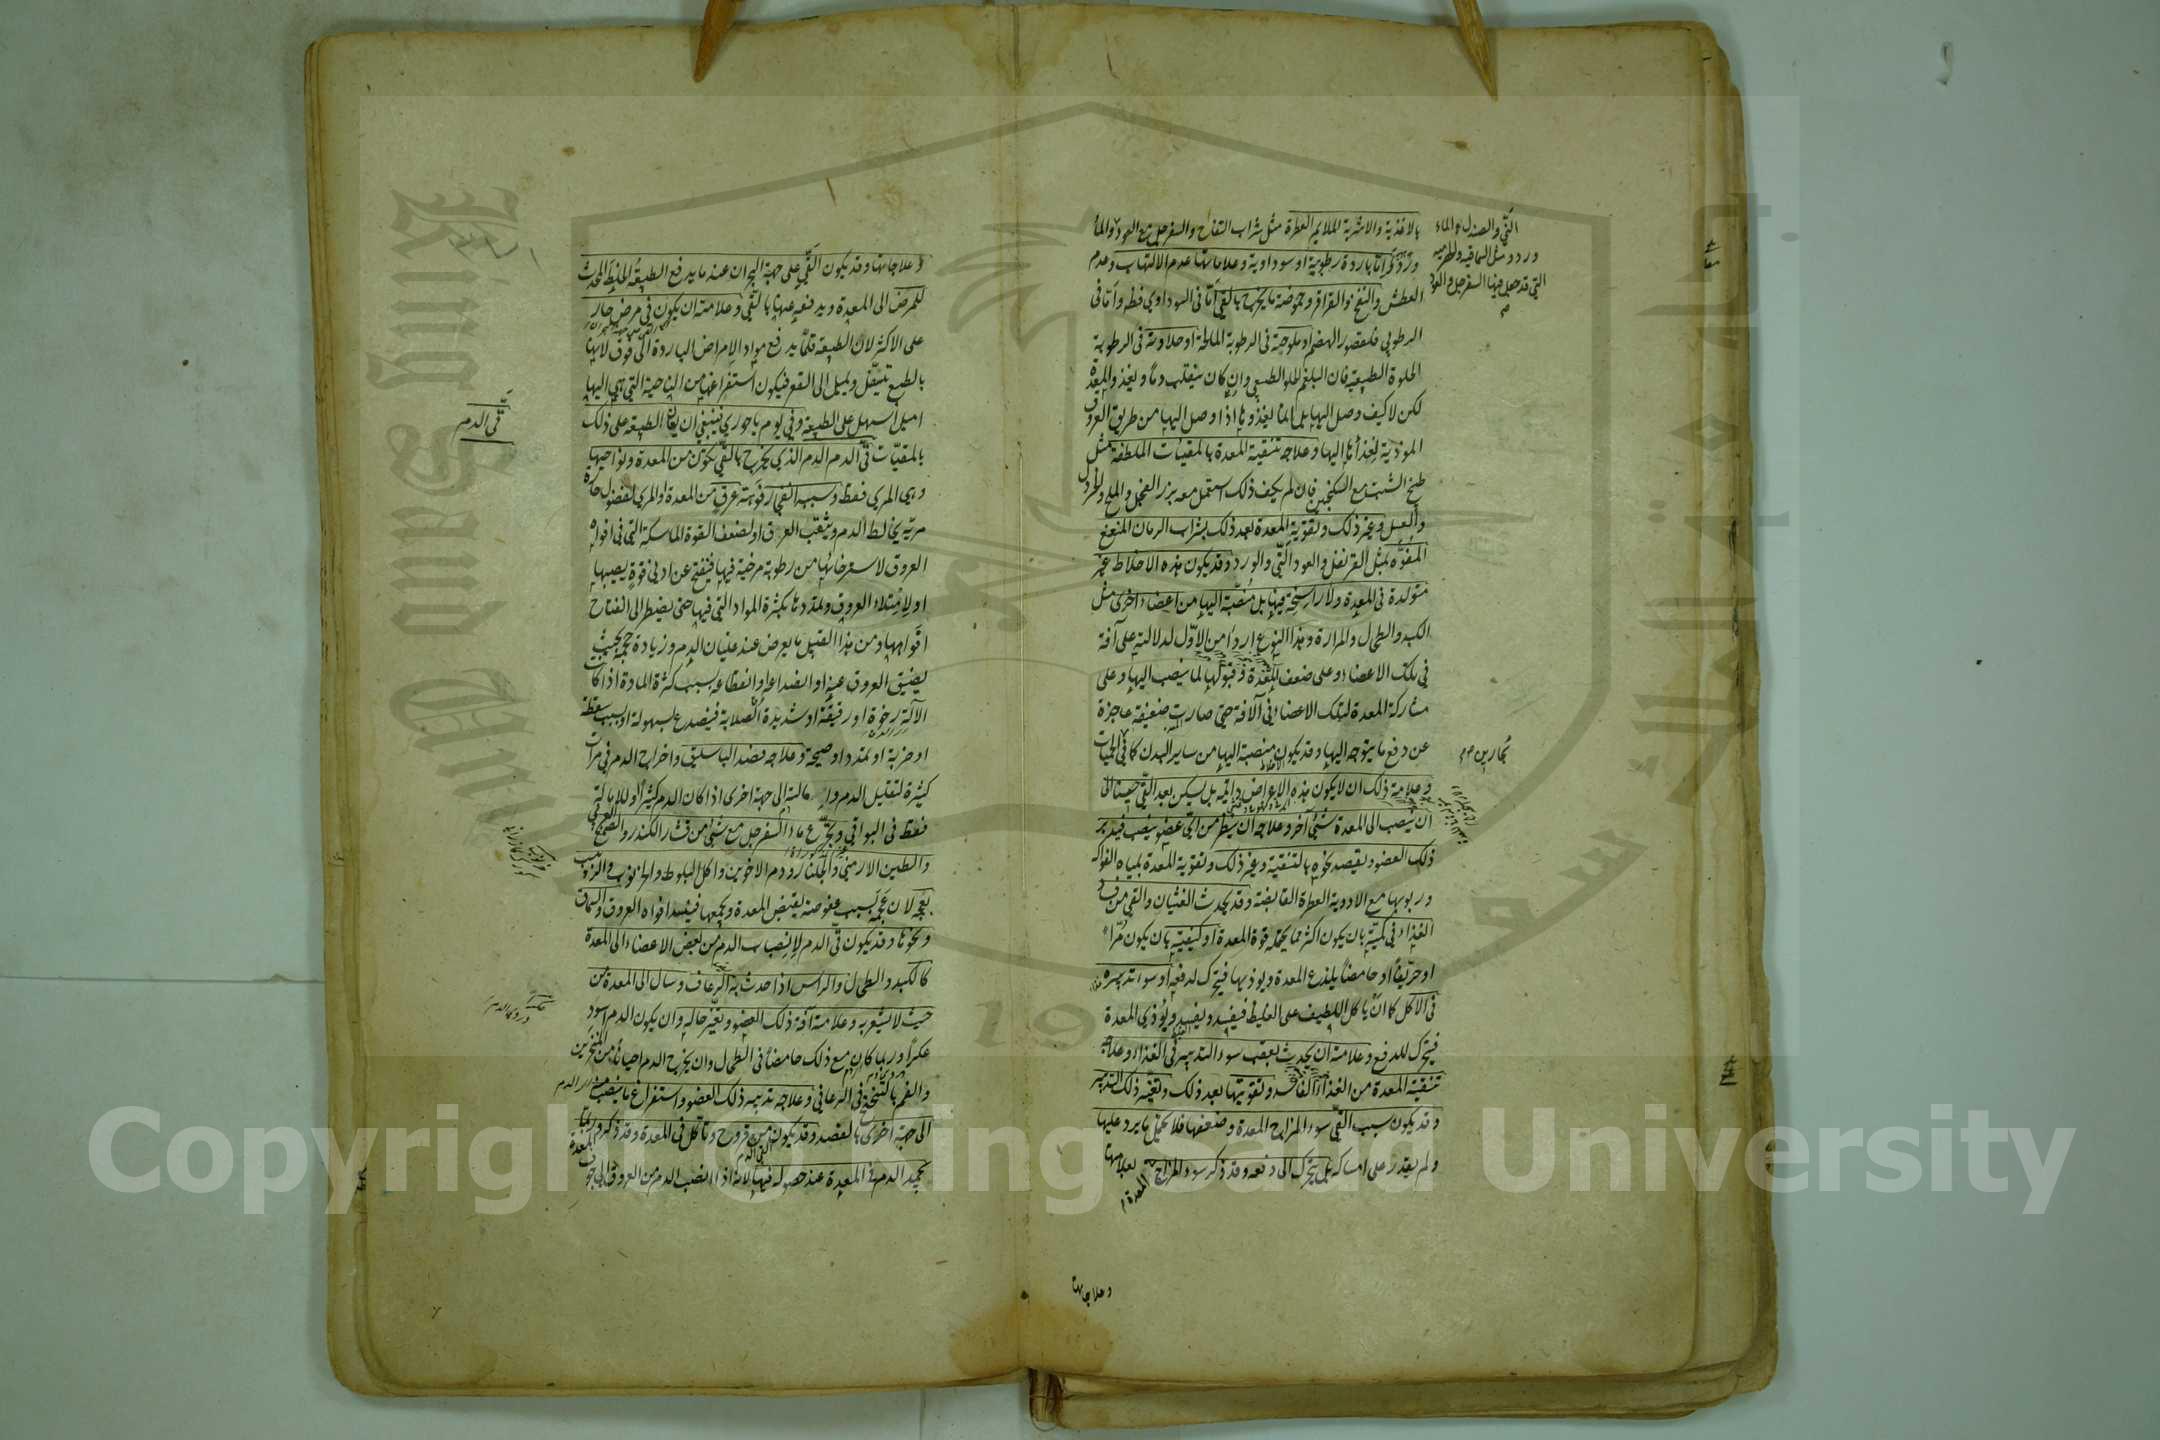 بالاغذية والاشربة الملايمة العطرة مثل شراب التفاح والسفرجل مع العود والماء
وردّ كراتا باردة رطوبية او سوداوية وعلاماتها عدم الالتهاب وعدم
العطش والنفخ والقراقر وحموضة ما يخرج بالقئ امّا فى السوداوي فظ وامّا فى
الرطوبي فلقصور الهضم او ملوحته فى الرطوبة المالحة او حلاوته فى الرطوبة
الحلوة الطبيعية فان البلغم الحلو الطبيعي وان كان ينقلب دما ويغذو المعدة
لكن لا كيف وصل اليها بل انما يغذوها اذا وصل اليها من طريق العروق
الموذية لغذائها اليها وعلاجه تنقية المعدة بالمقيئات الملطفة مثل
طبخ الشبت مع السكنجبين فان لم يكف ذلك استعمل معه بزر الفجل والملح والخردل
والعسل وغير ذلك وتقوية المعدة بعد ذلك بشراب الرمان المنعنع
المفوّه بمثل القرنفل والعود النّي والورد وقد يكون هذه الاخلاط غير
متولدة فى المعدة ولا راسخة فيها بل منصبّة اليها من اعضاء اخرى مثل
الكبد والطحال والمرارة وهذا النوع اردا من الاوّل لدلالته على آفة
في تلك الاعضاء وعلى ضعف المعدة وقبولها لما ينصب اليها وعلى
مشاركة المعدة لتلك الاعضاء فى الآفة حتى صارت ضعيفة عاجزة
عن دفع ما يتوجه اليها وقد يكون منصبة اليها من ساير البدن كما فى الحميات
وعلامة ذلك ان لا يكون هذه الاعراض دائمة بل يسكن بعد القئ حينا الى
ان ينصب الى المعدة شئ آخر وعلاجه ان ينظر من ايّ عضو ينصب فيدبر
ذلك العضو ويقصد نحوه بالتنقية وغير ذلك وتقوية المعدة بمياه الفواكه
وربوبها مع الادوية العطرة القابضة وقد يحدث الغثيان والقئ من فساد
الغذاء فى كميّته بان يكون اكثر مما يحتمله قوة المعدة او كيفيته بان يكون مُرّاً
او حرّيفاً او حامضاً يلذع المعدة ويوذيها فيتحرك لدفعه او سوء تدبيره
فى الاكل كما ان ياكل اللطيف على الغليظ فيفسد ويفسد ويؤذي المعدة
فيتحرك للدفع وعلامته ان يحدث بعقب سوء التدبير فى الغذاء وعلاجه
تنقية المعدة من الغذاء الفاسد وتقويتها بعد ذلك وتغيير ذلك التدبير
وقد يكون سبب القئ سوء المزاج المعدة وضعفها فلا تحتمل ما يرد عليها
ولم يقدر على امساكه بل يتحرك الى دفعه وقد ذكر سوء المزاج المعدة بعلاماتها
وعلاجاتها
النّي والصندل والماء
ورد ومثل السماقية والحصرمية
التي قد جعل فيها السفرجل والعود
وعلاجاتها وقد يكون القئ على جهة البحران عند ما يدفع الطبيعة الخلط المحدث
للمرض الى المعدة ويدفعه عنها بالقئ وعلامته ان يكون فى مرض حار
على الاكثر لانّ الطبيعة قلّما يدفع مواد الامراض الباردة الى فوق لانها
بالطبع تتثقّل وتميل الى القعر فيكون استفراغها من الناحية التي هي اليها
اميل اسهل على الطبيعة وفي يوم باحوري فينبغي ان يعان الطبيعة على ذلك
بالمقيّات قئ الدم الدم الذي يخرج بالقئ يكون من المعدة ونواحيها
وهي المري فقط وسببه انفجار فوّهة عرق من المعدة او المري لفضول حارة
مريّة يخالط الدم ويثقب العرق او لضعف القوة الماسكة التي فى افواه
العروق لاسترخائها من رطوبة مرخية فيها فينفتح عن ادنى قوة يصيبها
او لامتلاء العروق وتمددها بكثرة المواد التي فيها حتى يضطر الى انفتاح
افواهها ومن هذا القبيل ما يعرض عند غليان الدم وزيادة حجمه بحيث
يضيق العروق عنه او انصداعه او انقطاعه بسبب كثرة المادة اذا كانت
الآلة رخوة او رقيقة او شديدة الصلابة فينصدع بسهولة او بسبب سقطة
او ضربة او تمدد او صيحة وعلاجه فصد الباسليق واخراج الدم فى مرات
كثيرة لتقليل الدم وامالته الى جهة اخرى اذا كان الدم كثيراً وللامالة
فقط فى البواقي ويجرّع ماء السفرجل مع شئ من قشار الكندر والصمغ
والطين الارمني والجلنار ودم الاخوين واكل البلوط والخرنوب والزبيب
بعجمه لان عجمه بسبب عفوصته يقبض المعدة ويجمعها فينسد افواه العروق والسماق
ونحوها وقد يكون قئ الدم لانصباب الدم من بعض الاعضاء الى المعدة
كالكبد والطحال والراس اذا حدث به الرعاف وسال الى المعدة من
حيث لا يشعر به وعلامته آفة ذلك العضو وتغيّر حاله وان يكون الدم اسود
عكراً وربما كان مع ذلك حامضاً فى الطحال وان يخرج الدم احياناً من المنخرين
والفم بالتنخع فى الرعافي وعلاجه تدبير ذلك العضو واستفراغ ما ينصب منه
الى جهة اخرى بالفصد وقد يكون من قروح وتاكل فى المعدة وقد ذكر وربما
تجمد الدم فى المعدة عند حصوله فيها لانه اذا انصب الدم من العروق الى جوف المعدة
قئ الدم